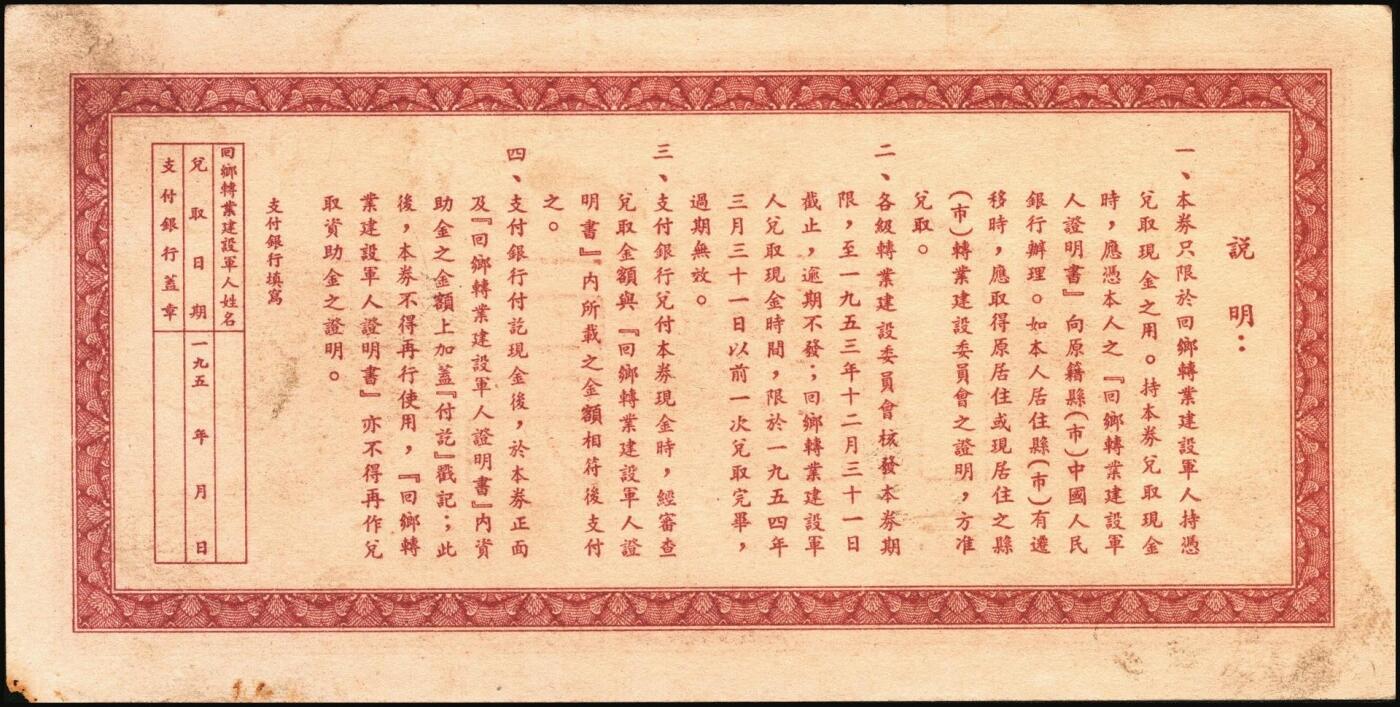 説明：
一、本券只限於回鄉轉業建設軍人持憑
兌取現金之用。持本券兌取現金
時，應憑本人之『回鄉轉業建設軍
人證明書』向原籍縣(市)中國人民
銀行辦理。如本人居住縣(市)有遷
移時，應取得原居住或現居住之縣
(市)轉業建設委員會之證明，方准
兌取。
二、各級轉業建設委員會核發本券期
限，至一九五三年十二月三十一日
截止，逾期不發；回鄉轉業建設軍
人兌取現金時間，限於一九五四年
三月三十一日以前一次兌取完畢，
過期無效。
三、支付銀行兌付本券現金時，經審查
兌取金額與『回鄉轉業建設軍人證
明書』內所載之金額相符後支付
之。
四、支付銀行付訖現金後，於本券正面
及『回鄉轉業建設軍人證明書』內資
助金之金額上加蓋『付訖』戳記；此
後，本券不得再行使用，『回鄉轉
業建設軍人證明書』亦不得再作兌
取資助金之證明。
支付銀行填寫
回鄉轉業建設軍人姓名
兌取日期 一九五 年 月 日
支付銀行蓋章